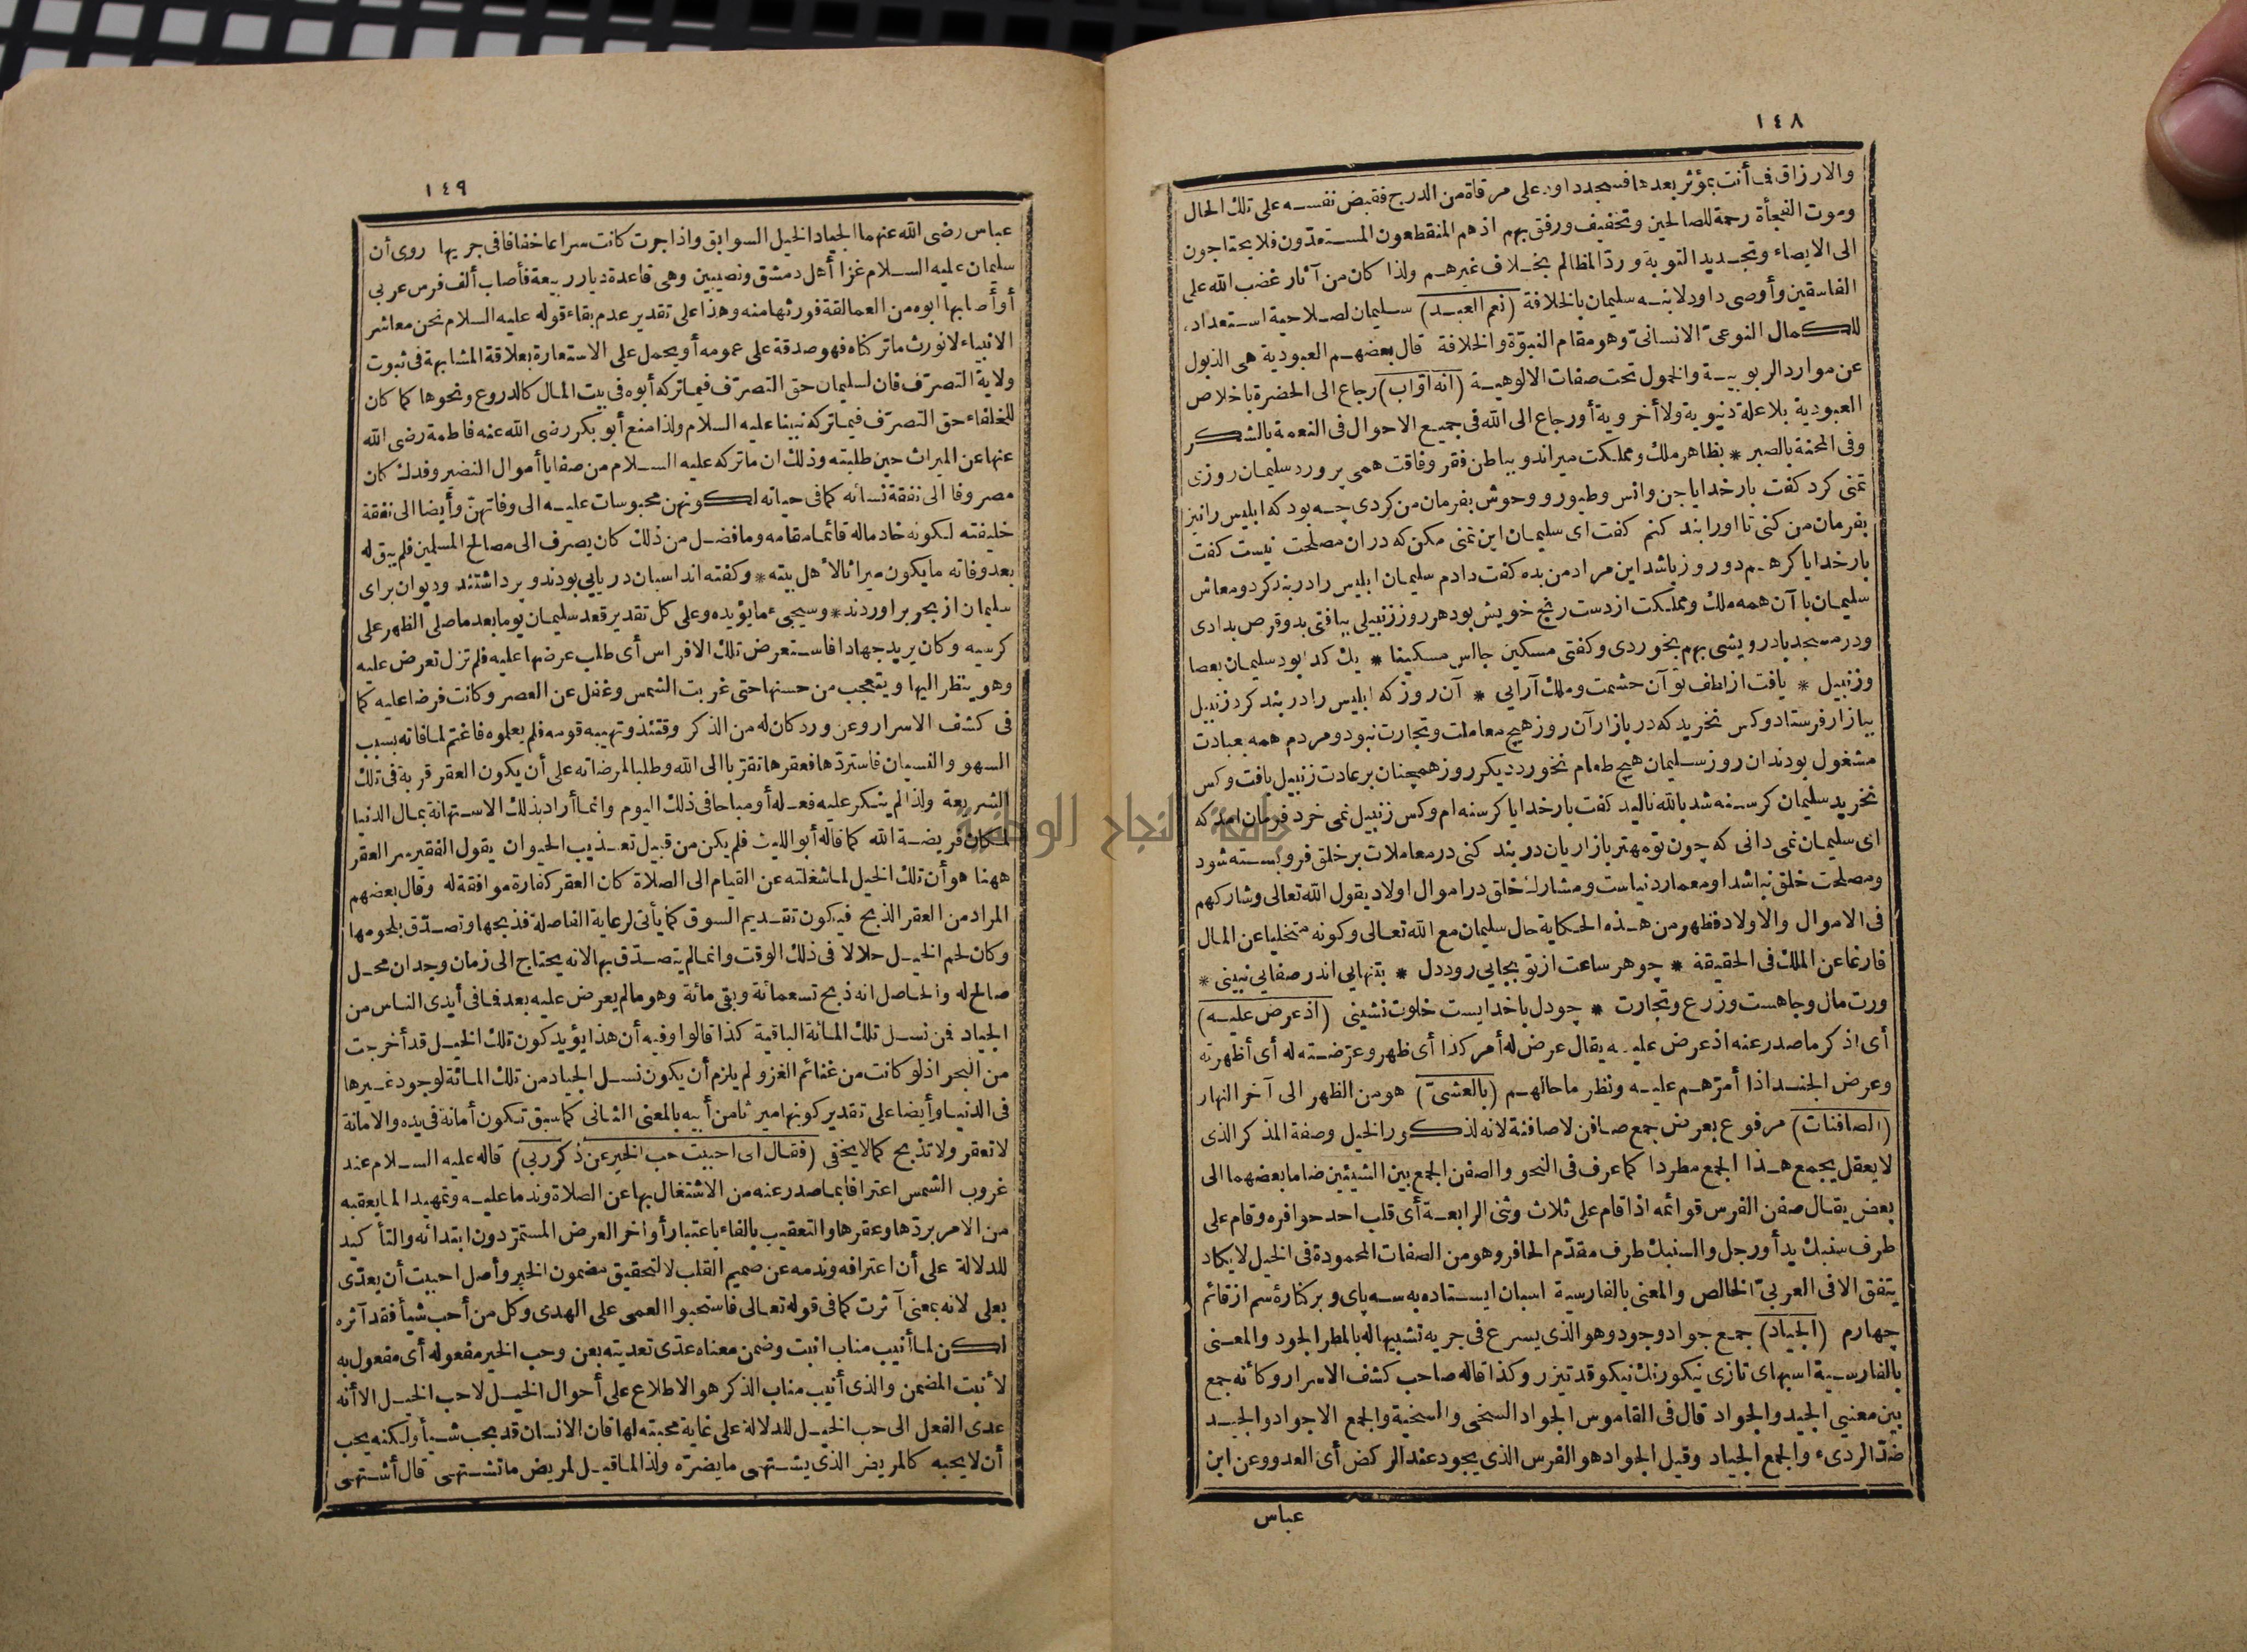 ١٤٨
والارزاق فى أنت بمؤثر بعدها فسجد داود على مرقاة من الدرج فقبض نفسه على تلك الحال
وموت الفجأة رحمة للصالحين وتخفيف ورفق بهم اذهم المنقطعون المستعدّون فلا يحتاجون
الى الايصاء وتجديد التوبة وردّ المظالم بخلاف غيرهم ولذا كان من آثار غضب الله على
الفاسقين وأوصى داود لابنه سليمان بالخلافة (نعم العبد) سليمان لصلاحية استعداده
للكمال النوعىّ الانسانىّ وهو مقام النبوّة والخلافة قال بعضهم العبودية هى الذبول
عن موارد الربوبية والخمول تحت صفات الالوهية (انه اوّاب) رجاع الى الحضرة باخلاص
العبودية بلا علة دنيوية ولا أخروية أو رجاع الى الله فى جميع الاحوال فى النعمة بالشكر
وفى المحنة بالصبر * بظاهر ملك ومملكت ميراند وبباطن فقر وفاقت همى پرورد سليمان روزى
تمنى كرد كفت بارخدايا جن وانس وطيور ووحوش بفرمان من كردى چه بود كه ابليس رانيز
بفرمان من كنى تا اورا بند كنم كفت اى سليمان اين تمنى مكن كه دران مصلحت نيست كفت
بارخدايا كر هم دو روز باشد اين مراد من بده كفت دادم سليمان ابليس را دربند كرد ومعاش
سليمان با آن همه ملك ومملكت از دست رنج خويش بود هر روز زنبيلى ببافتى بدو قرص بدادى
ودر مسجد با درويشى بهم بخوردى وكفتى مسكين جالس مسكينا * يك كدا بود سليمان بعصا
وزنبيل * يافت از لطف تو آن حشمت وملك آرايى * آن روز كه ابليس را در بند كرد زنبيل
ببازار فرستاد وكس نخريد كه در بازار آن روز هيچ معاملت وتجارت نبود ومردم همه بعبادت
مشغول بودند ان روز سليمان هيچ طعام نخورد ديكر روز همچنان بر عادت زنبيل بافت وكس
نخريد سليمان كرسنه شد بالله ناليد كفت بارخدايا كرسنه ام وكس زنبيل نمى خرد فرمان امد كه
اى سليمان نمى دانى كه چون تو مهتر بازاريان دربند كنى در معاملات بر خلق فرو بسته شود
ومصلحت خلق نباشد او معمار دنياست ومشارك خلق در اموال اولاد يقول الله تعالى وشاركهم
فى الاموال والاولاد فظهر من هذه الحكاية حال سليمان مع الله تعالى وكونه متخليا عن المال
فارغا عن الملك فى الحقيقة * چو هر ساعت از تو بجايى رود دل * بتنهايى اندر صفايى نبينى *
ورت مال وجاهست وزرع وتجارت * چو دل با خدايست خلوت نشينى (اذ عرض عليه)
أى اذكر ما صدر عنه اذ عرض عليه يقال عرض له أمر كذا أى ظهر وعرّضته له أى أظهرته
وعرض الجند اذا أمرّهم عليه ونظر ما حالهم (بالعشىّ) هو من الظهر الى آخر النهار
(الصافنات) مرفوع بعرض جمع صافن لا صافنة لانه لذكور الخيل وصفة المذكر الذى
لا يعقل يجمع هذا الجمع مطردا كما عرف فى النحو والصفن الجمع بين الشيئين ضاما بعضهما الى
بعض يقال صفن الفرس قوائمه اذا قام على ثلاث وثنى الرابعة أى قلب احد حوافره وقام على
طرف سنبك يد أو رجل والسنبك طرف مقدّم الحافر وهو من الصفات المحمودة فى الخيل لا يكاد
يتفق الا فى العربىّ الخالص والمعنى بالفارسية اسبان ايستاده به سه پاى وبر كناره سم از قائم
چهارم (الجياد) جمع جواد وجود وهو الذى يسرع فى جريه تشبيها له بالمطر الجود والمعنى
بالفارسية اسبهاى تازى نيكو رنك نيكو قد تيزر وكذا قاله صاحب كشف الاسرار وكأنه جمع
بين معنيى الجيد والجواد قال فى القاموس الجواد السخى والسخية والجمع الاجواد والجيد
ضدّ الردىء والجمع الجياد وقيل الجواد هو الفرس الذى يجود عند الركض أى العدو وعن ابن
عباس
١٤٩
عباس رضى الله عنهما الجياد الخيل السوابق واذا جرت كانت سراعا خفافا فى جريها روى أن
سليمان عليه السلام غزا أهل دمشق ونصيبين وهى قاعدة ديار ربيعة فأصاب ألف فرس عربى
أو أصابها ابوه من العمالقة فورثها منه وهذا على تقدير عدم بقاء قوله عليه السلام نحن معاشر
الانبياء لا نورث ما تركناه فهو صدقة على عمومه أو يحمل على الاستعارة بعلاقة المشابهة فى ثبوت
ولاية التصرّف فان لسليمان حق التصرّف فيما تركه أبوه فى بيت المال كالدروع ونحوها كما كان
للخلفاء حق التصرّف فيما تركه نبينا عليه السلام ولذا منع أبو بكر رضى الله عنه فاطمة رضى الله
عنها عن الميراث حين طلبته وذلك ان ما تركه عليه السلام من صفايا أموال النضير وفدك كان
مصروفا الى نفقة نسائه كما فى حياته لكونهن محبوسات عليه الى وفاتهنّ وأيضا الى نفقة
خليفته لكونه خادما له قائما مقامه وما فضل من ذلك كان يصرف الى مصالح المسلمين فلم يبق له
بعد وفاته ما يكون ميراثا لأهل بيته * وكفته اند اسبان دريايى بودند وپر داشتند وديوان براى
سليمان از بحر براوردند * وسيجىء ما يؤيده وعلى كل تقدير قعد سليمان يوما بعدما صلى الظهر على
كرسيه وكان يريد جهادا فاستعرض تلك الافراس أى طلب عرضها عليه فلم تزل تعرض عليه
وهو ينظر اليها ويتعجب من حسنها حتى غربت الشمس وغفل عن العصر وكانت فرضا عليه كما
فى كشف الاسرار وعن ورد كان له من الذكر وقتئذ وتهيبه قومه فلم يعلموه فاغتم لما فاته بسبب
السهو والنسيان فاستردّها فعقرها تقرّبا الى الله وطلبا لمرضاته على أن يكون العقر قربة فى تلك
الشريعة ولذا لم ينكر عليه فعله أو مباحا فى ذلك اليوم وانما أراد بذلك الاستهانة بمال الدنيا
لمكان فريضة الله كما قاله أبو الليث فلم يكن من قبيل تعذيب الحيوان يقول الفقير سر العقر
ههنا هو أن تلك الخيل لما شغلته عن القيام الى الصلاة كان العقر كفارة موافقة له وقال بعضهم
المراد من العقر الذبح فيكون تقديم السوق كما يأتى لرعاية الفاصلة فذبحها وتصدّق بلحومها
وكان لحم الخيل حلالا فى ذلك الوقت وانما لم يتصدّق بها لانه يحتاج الى زمان وجدان محل
صالح له والحاصل انه ذبح تسعمائة وبقى مائة وهو ما لم يعرض عليه بعد فما فى أيدى الناس من
الجياد فمن نسل تلك المائة الباقية كذا قالوا وفيه أن هذا يؤيد كون تلك الخيل قد أخرجت
من البحر اذ لو كانت من غنائم الغزو لم يلزم أن يكون نسل الجياد من تلك المائة لوجود غيرها
فى الدنيا وأيضا على تقدير كونها ميراثا من أبيه بالمعنى الثانى كما سبق تكون أمانة فى يده والامانة
لا تعقر ولا تذبح كما لا يخفى (فقال انى احببت حب الخير عن ذكر ربى) قاله عليه السلام عند
غروب الشمس اعترافا بما صدر عنه من الاشتغال بها عن الصلاة وندما عليه وتمهيدا لما يعقبه
من الامر بردّها وعقرها والتعقيب بالفاء باعتبار أواخر العرض المستمرّ دون ابتدائه والتأكيد
للدلالة على أن اعترافه وندمه عن صميم القلب لا لتحقيق مضمون الخبر وأصل احببت أن يعدّى
بعلى لانه بمعنى آثرت كما فى قوله تعالى فاستحبوا العمى على الهدى وكل من أحب شيأ فقد آثره
لكن لما أنيب مناب انبت وضمن معناه عدّى تعديته بعن وحب الخير مفعوله أى مفعول به
لأنبت المضمن والذى أنيب مناب الذكر هو الاطلاع على أحوال الخيل لا حب الخيل الا أنه
عدى الفعل الى حب الخيل للدلالة على غاية محبته لها فان الانسان قد يحب شيأ ولكنه يحب
أن لا يحبه كالمريض الذى يشتهى ما يضرّه ولذا لما قيل لمريض ما تشتهى قال أشتهى
جامعة النجاح الوطنية